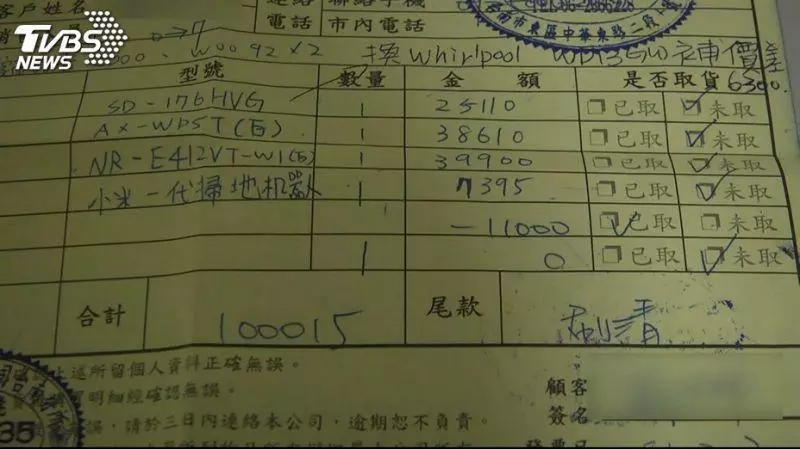 客戶姓名 聯絡手機
電話 市內電話
台南市東區中華東路二段
TVBS
NEWS
W0092×2 換 Whirlpool 補價差
6300
型號 數量 金額 是否取貨
SD-176HVG 1 25110 已取 未取
AX-WP5T(百) 1 38610 已取 未取
NR-E412VT-W1(百) 1 39900 已取 未取
小米一代掃地机器人 1 7395 已取 未取
-11000 已取 未取
1 0 已取 未取
合計 100015 尾款 刷清
上述所留個人資料正確無誤。
明細經確認無誤。
誤,請於三日內連絡本公司,逾期恕不負責。
顧客
簽名
35